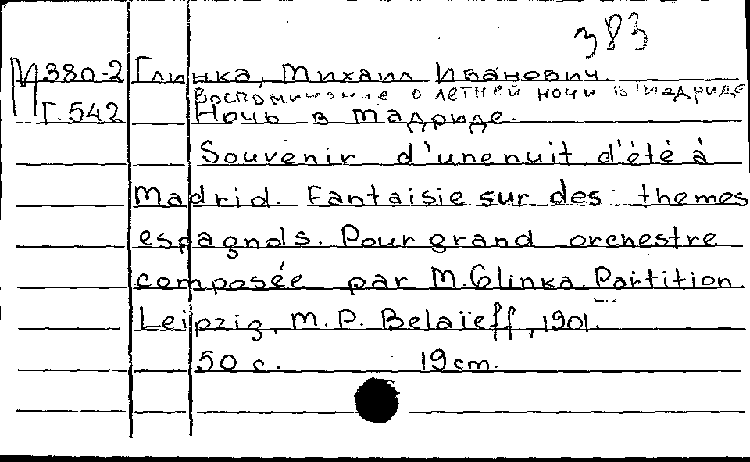 383
М380-2 Глинка, Михаил Иванович.
Воспоминание о летней ночи в Мадриде
Г.542 Ночь в Мадриде.
Souvenir d'une nuit d'été à
Madrid. Fantaisie sur des themes
espagnols. Pour grand orchestre
composée par M. Glinka. Partition.
Leipzig, M. P. Belaïeff, 1901.
50 с. 19 cm.